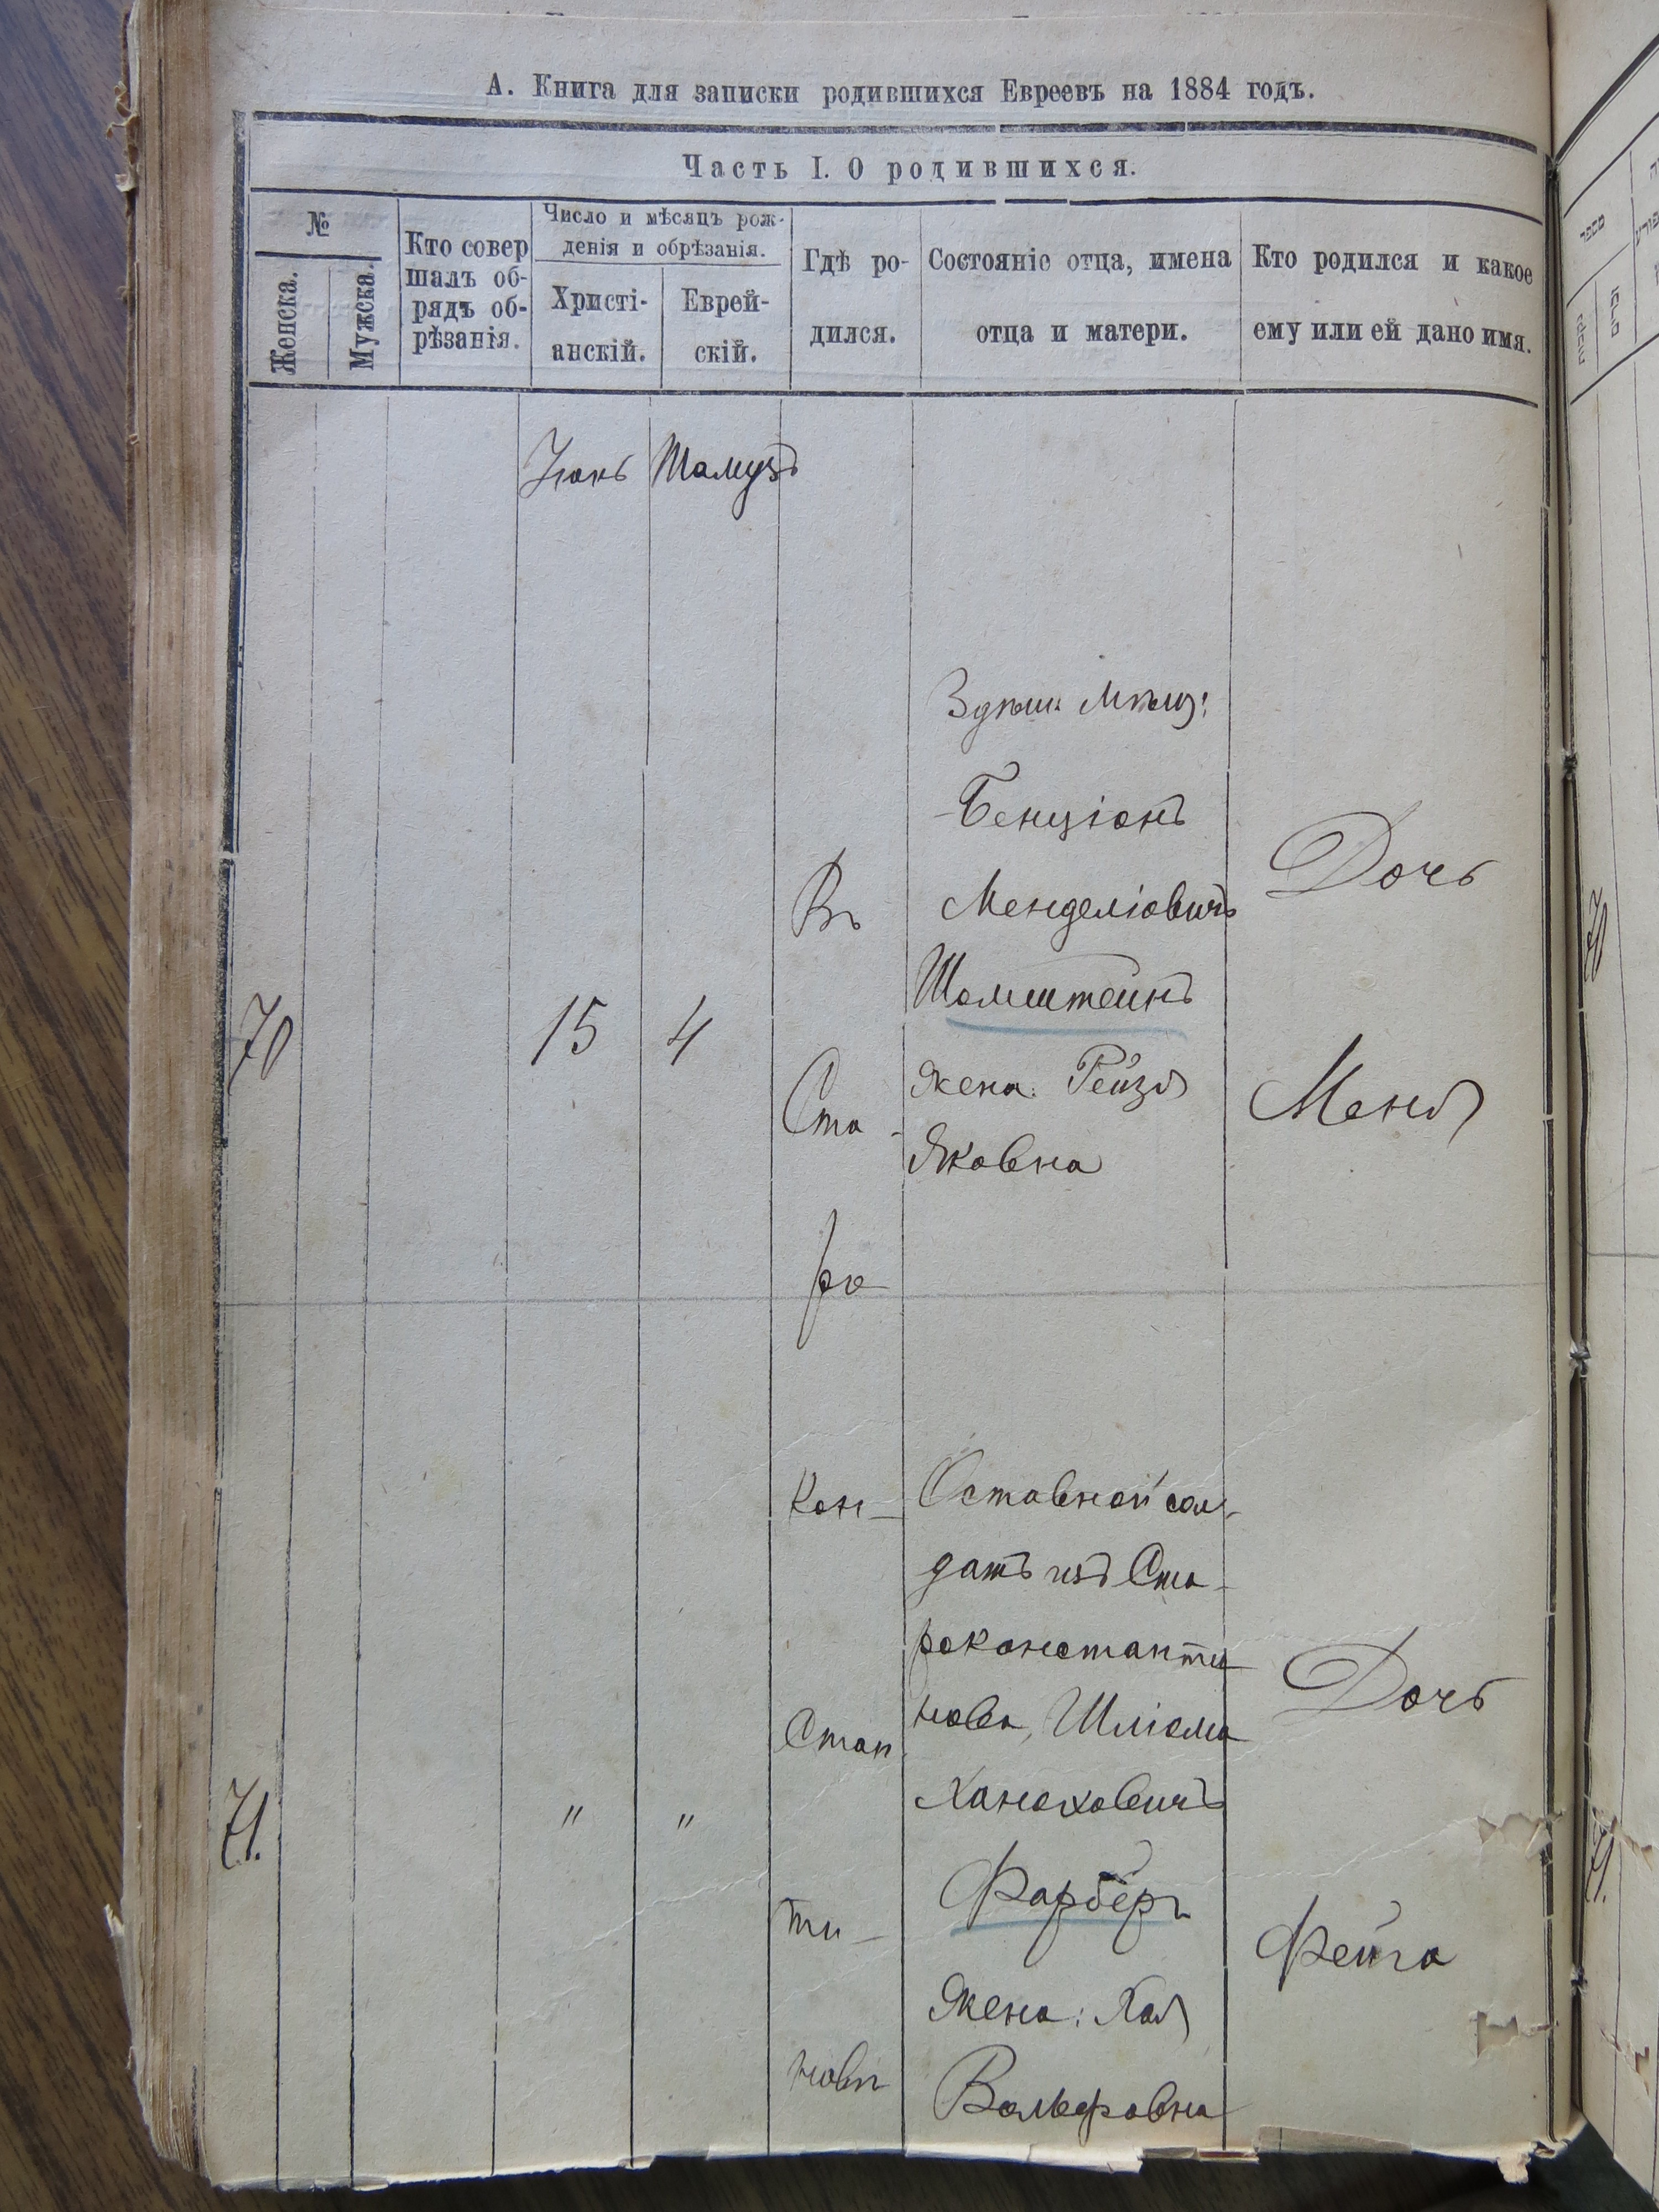 А. Книга для записки родившихся Евреевъ на 1884 годъ.
Часть I. О родившихся.
№
Женска.
Мужска.
Кто совер
шалъ об-
рядъ об-
рѣзанія.
Число и мѣсяцъ рож-
денія и обрѣзанія.
Христі-
анскій.
Еврей-
скій.
Гдѣ ро-
дился.
Состояніе отца, имена
отца и матери.
Кто родился и какое
ему или ей дано имя.
Іюнь Тамузъ
70
15
4
Въ
Ста-
ро
Здѣш: Мѣщ:
Бенціонъ
Менделіовичъ
Шомштейнъ
жена: Рейзя
Яковна
Дочь
Меня
71.
"
"
Кон-
стан
ти-
новѣ
Оставной сол-
датъ изъ Ста-
роконстанти
нова, Шліома
Ханоховичъ
Фарберъ
жена: Хая
Вольфовна
Дочь
Фейга
70
71.